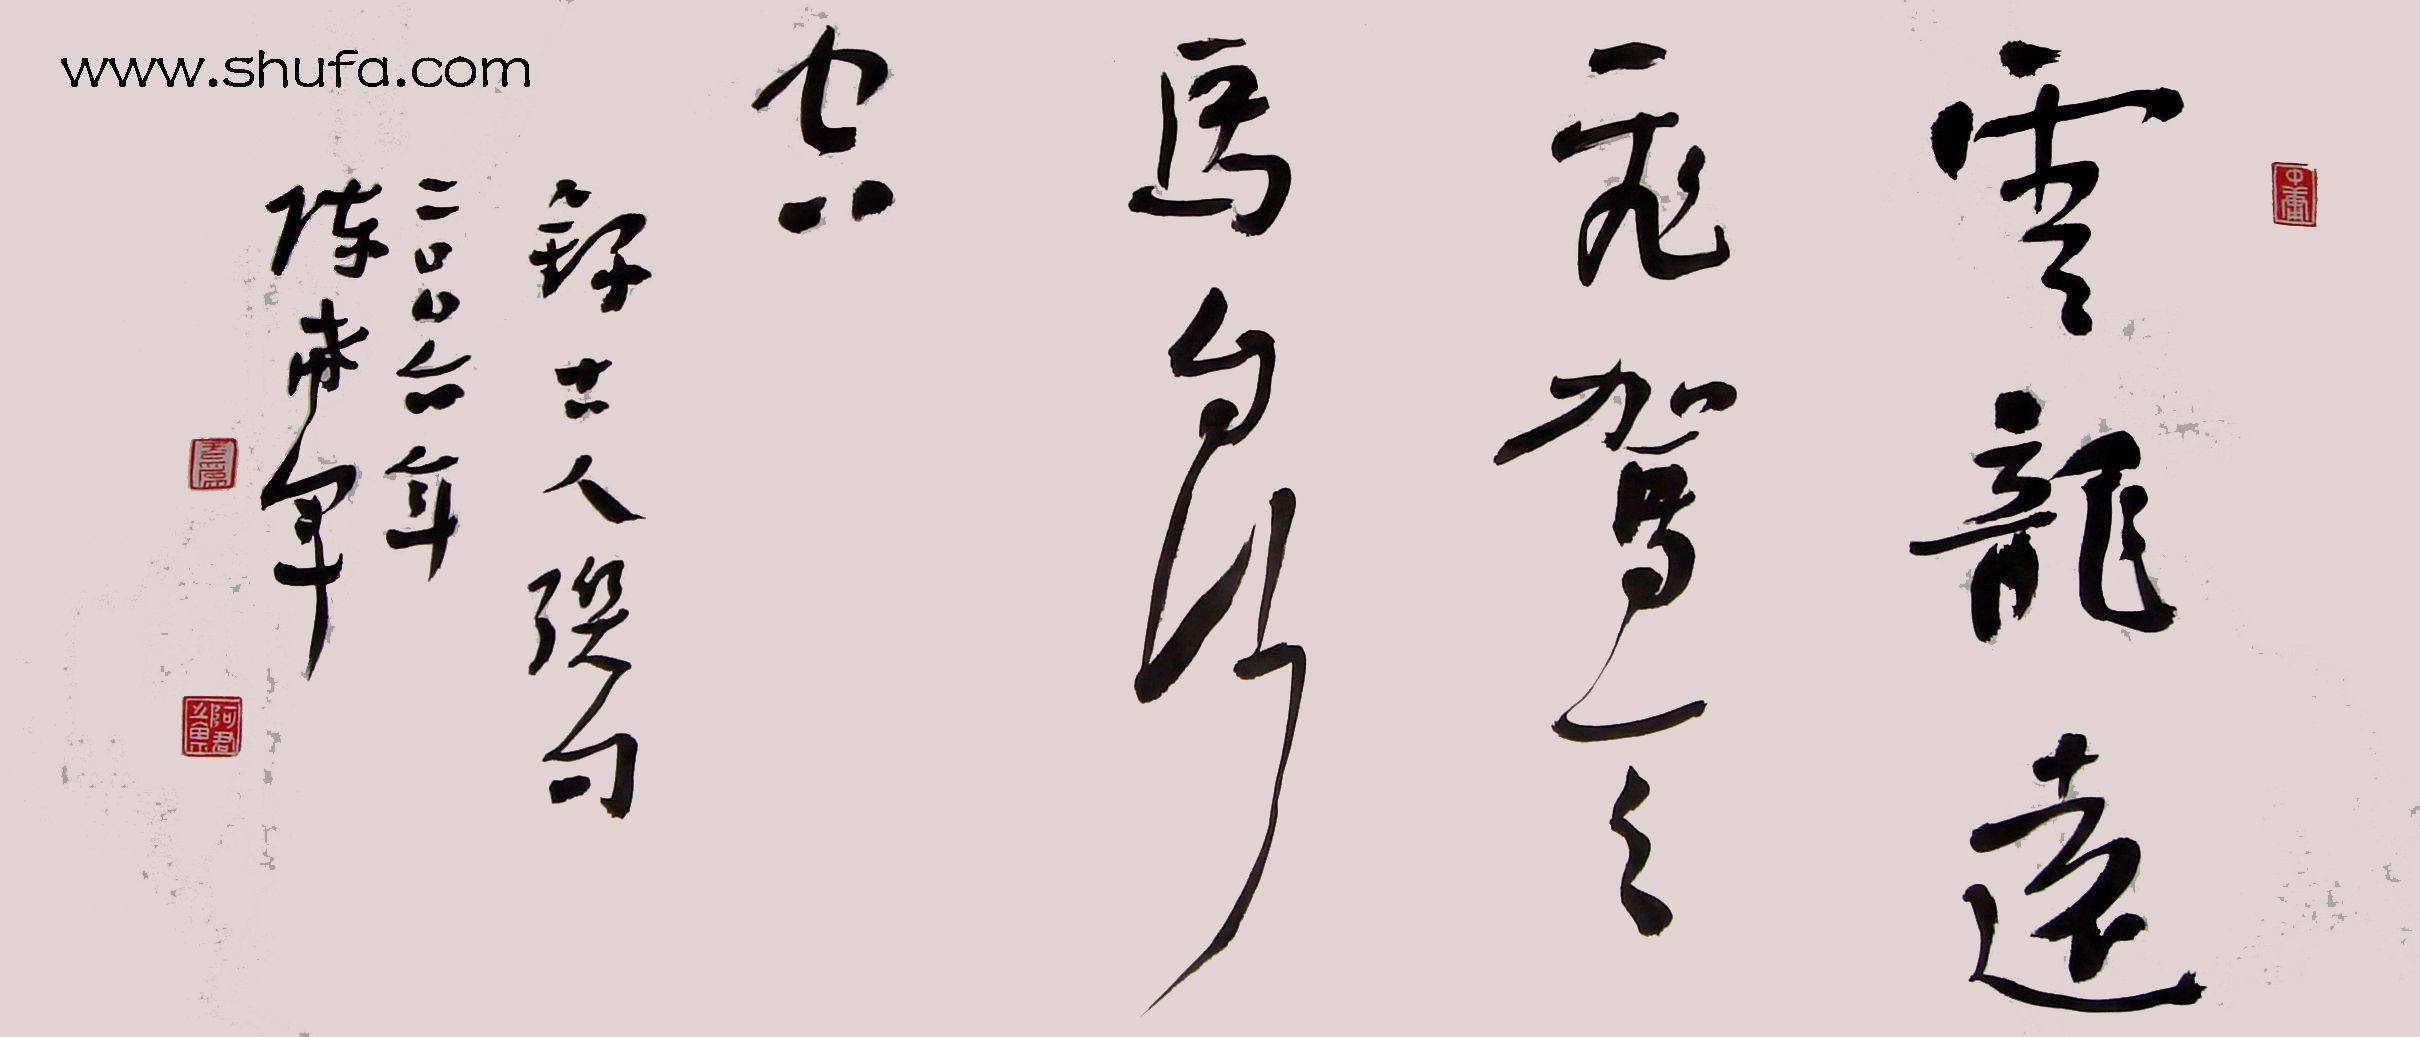 雲龍遠
飛駕天
馬自行
空
錄古人聯句
二〇〇六年
陳 軍
www.shufa.com